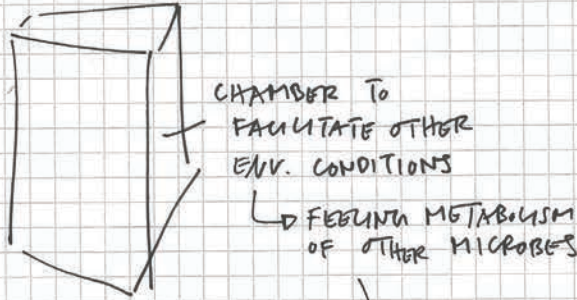 CHAMBER TO
FACILITATE OTHER
ENV. CONDITIONS
FEELING METABOLISM
OF OTHER MICROBES